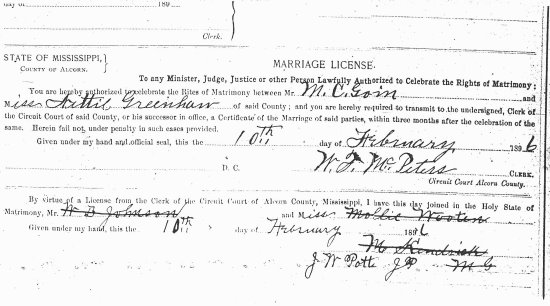 day of 189
Clerk.
STATE OF MISSISSIPPI,
COUNTY OF ALCORN.
MARRIAGE LICENSE.
To any Minister, Judge, Justice or other Person Lawfully Authorized to Celebrate the Rights of Matrimony:
You are hereby authorized to celebrate the Rites of Matrimony between Mr. M. C. Goin and
Miss Hettie Greenhaw of said County; and you are hereby required to transmit to the undersigned, Clerk of
the Circuit Court of said County, or his successor in office, a Certificate of the Marriage of said parties, within three months after the celebration of the
same. Herein fail not under penalty in such cases provided.
Given under my hand and official seal, this the 10th day of February 1896
W. T. McPeters CLERK
D. C. Circuit Court Alcorn County.
By virtue of a License from the Clerk of the Circuit Court of Alcorn County, Mississippi, I have this day joined in the Holy State of
Matrimony, Mr. W B Johnson and Miss Mollie Wooten
Given under my hand, this the 10th day of February 1896
M Kendrick
J W Potts JP M G